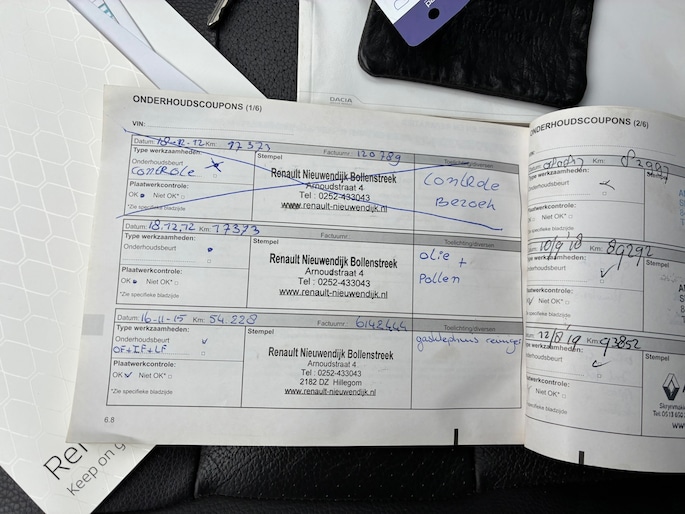 DACIA
ONDERHOUDSCOUPONS (1/6)
VIN:
Datum: 18-12-12 Km: 17373 Factuurnr.: 120789
Type werkzaamheden: Stempel Toelichting/diversen
Onderhoudsbeurt
controle
Renault Nieuwendijk Bollenstreek
Arnoudstraat 4
Tel : 0252-433043
www.renault-nieuwendijk.nl
Controle
Bezoek
Plaatwerkcontrole:
OK Niet OK*
*Zie specifieke bladzijde
Datum: 18.12.12 Km: 17373 Factuurnr.:
Type werkzaamheden: Stempel Toelichting/diversen
Onderhoudsbeurt
Renault Nieuwendijk Bollenstreek
Arnoudstraat 4
Tel : 0252-433043
www.renault-nieuwendijk.nl
olie +
Pollen
Plaatwerkcontrole:
OK Niet OK*
*Zie specifieke bladzijde
Datum: 16-11-15 Km: 54.228 Factuurnr.: 6148444
Type werkzaamheden: Stempel Toelichting/diversen
Onderhoudsbeurt
OF+IF+LF
Renault Nieuwendijk Bollenstreek
Arnoudstraat 4
Tel : 0252-433043
2182 DZ Hillegom
www.renault-nieuwendijk.nl
Plaatwerkcontrole:
OK Niet OK*
*Zie specifieke bladzijde
6.8
ONDERHOUDSCOUPONS (2/6)
VIN:
Datum: Km:
Type werkzaamheden:
Onderhoudsbeurt
Plaatwerkcontrole:
OK Niet OK*
*Zie specifieke bladzijde
10/9/18 Km: 89292
Type werkzaamheden:
Onderhoudsbeurt
Plaatwerkcontrole:
Niet OK*
specifieke bladzijde
Datum: 12/8/19 Km: 93852
Type werkzaamheden: Stempel
Onderhoudsbeurt
Plaatwerkcontrole:
OK Niet OK*
*Zie specifieke bladzijde
Keep on g